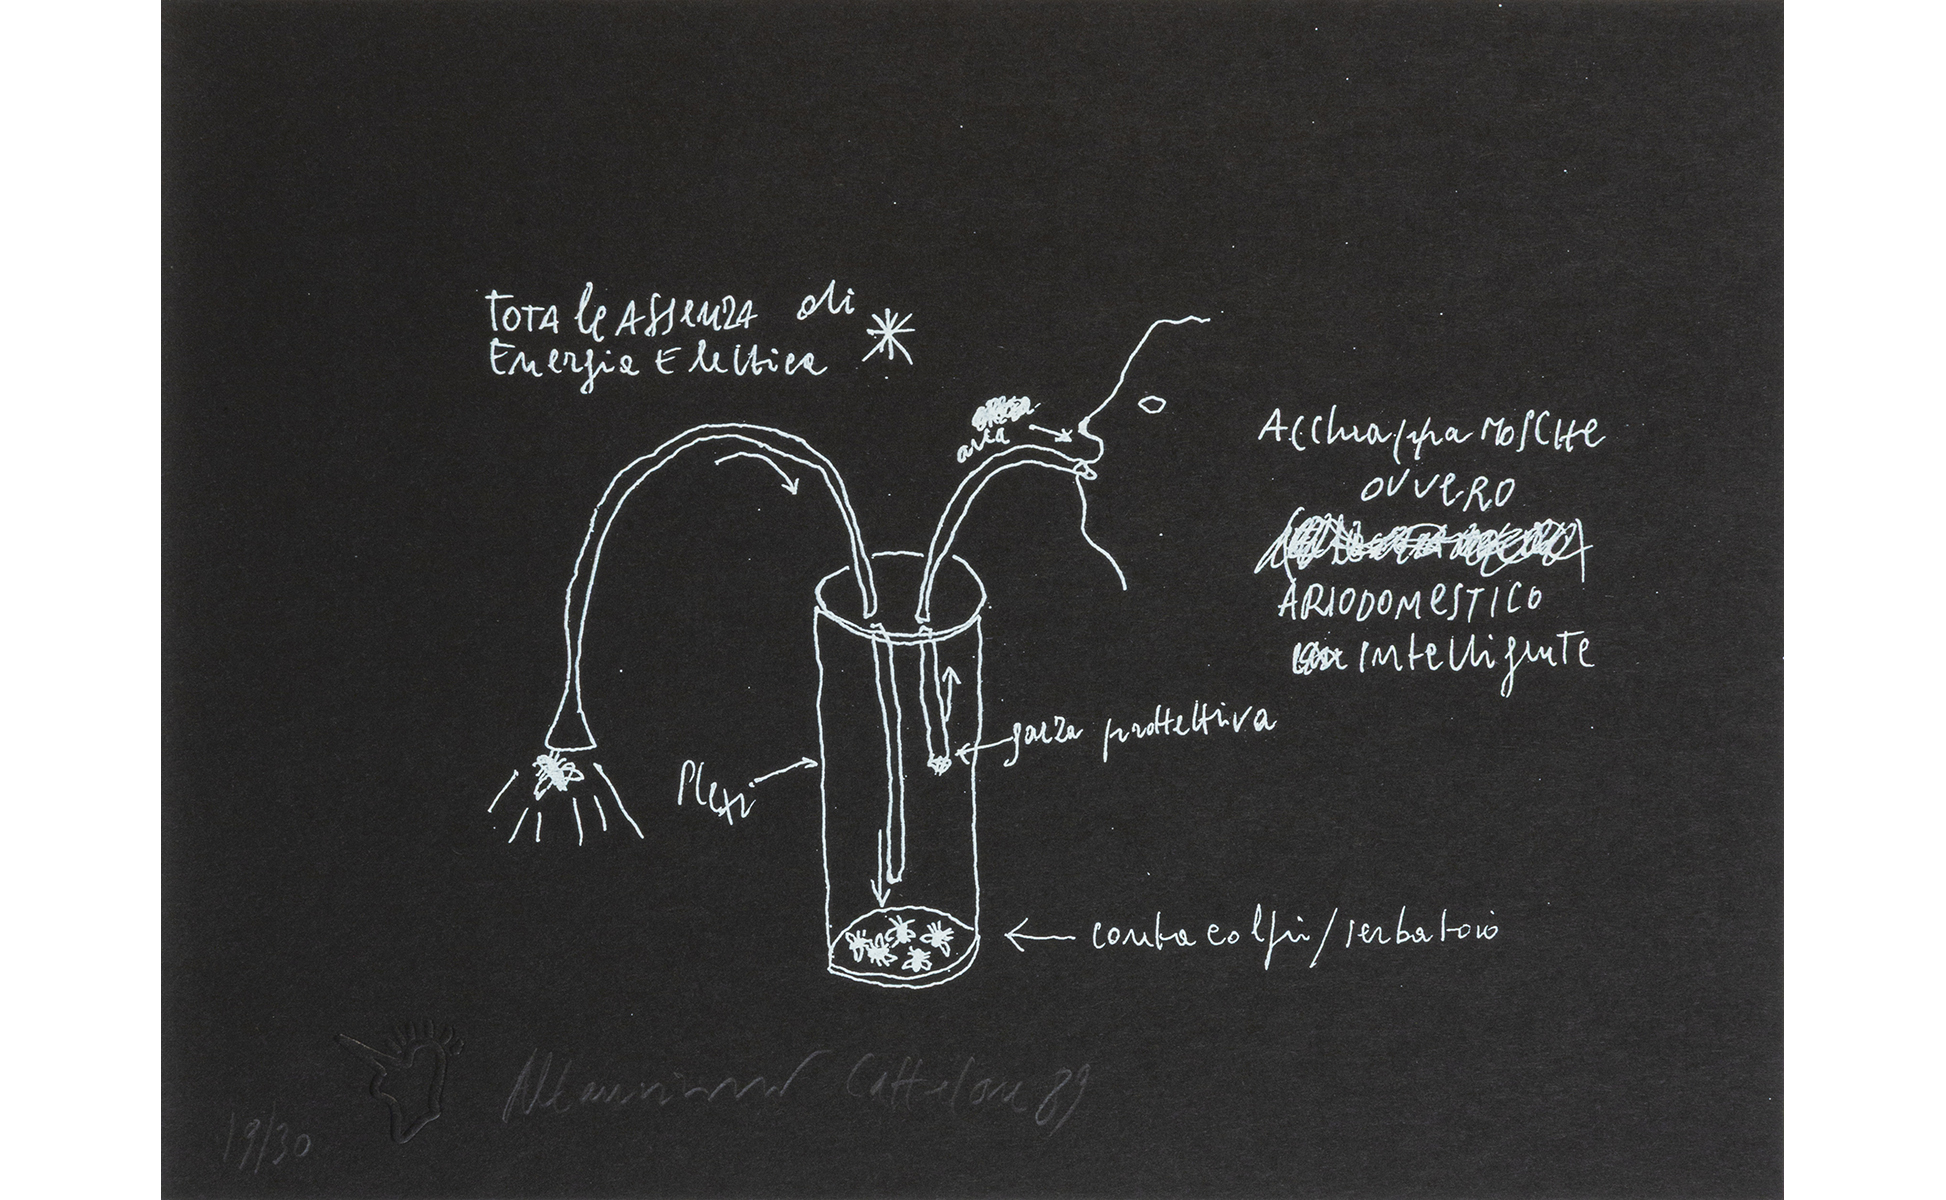 TOTAle ASSENZA di
Energia Elettrica
aria
AcchiappaMOSCHE
OVVERO
ARIODOMESTICO
intelligente
garza prottettiva
Plexi
contracolpi/serbatoio
Maurizio Cattelan 89
19/30